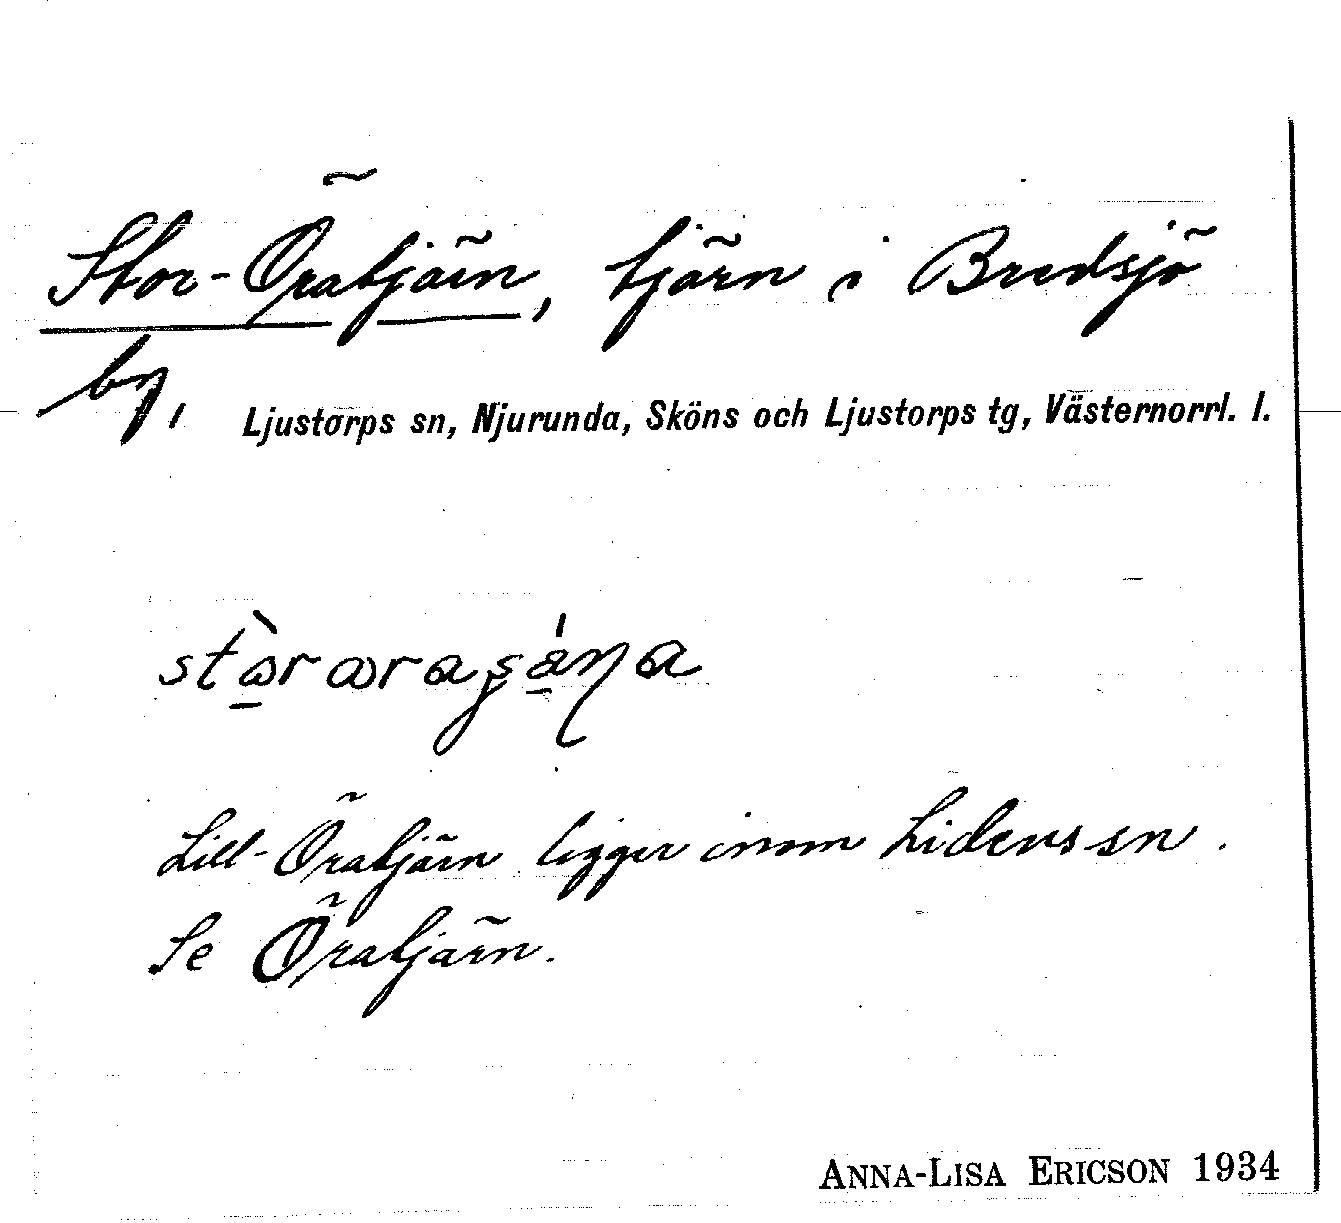 Stor-Öratjärn, tjärn i Bredsjö
by, Ljustorps sn, Njurunda, Sköns och Ljustorps tg, Västernorrl. l.
Lill-Öratjärn ligger inom Lidens sn.
Se Öratjärn.
ANNA-LISA ERICSON 1934